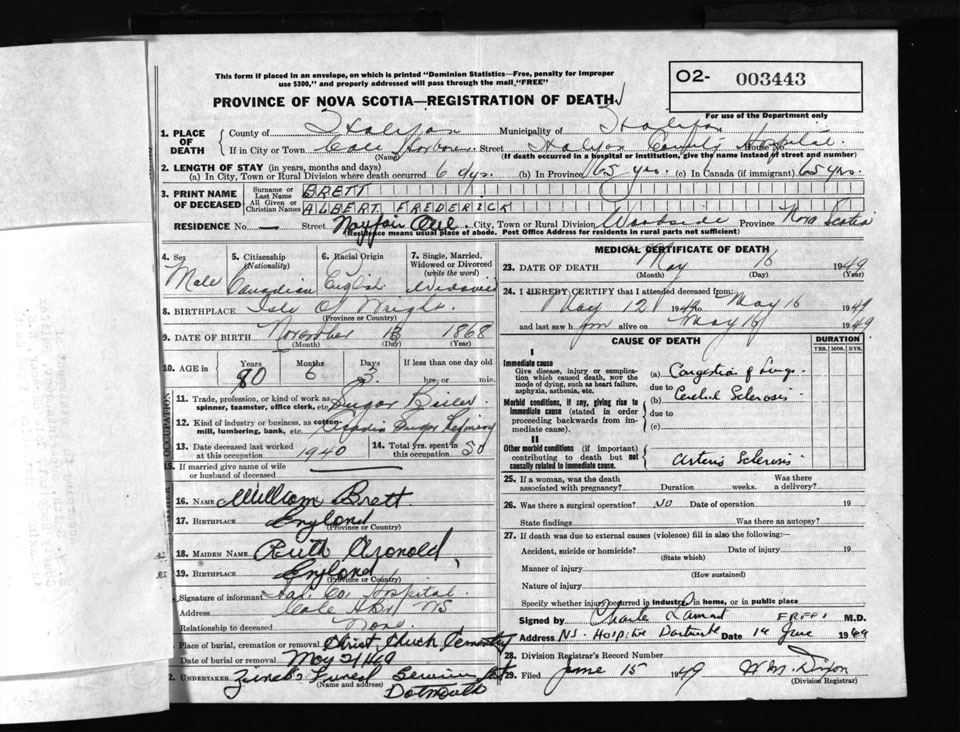 This form if placed in an envelope, on which is printed "Dominion Statistics—Free, penalty for improper
use $300," and properly addressed will pass through the mail "FREE"
O2- 003443
For use of the Department only
PROVINCE OF NOVA SCOTIA—REGISTRATION OF DEATH
1. PLACE OF DEATH
County of Halifax Municipality of Halifax
If in City or Town Cole Harbour Street Halifax County Hospital House No.
(Name) (If death occurred in a hospital or institution, give the name instead of street and number)
2. LENGTH OF STAY (in years, months and days)
(a) In City, Town or Rural Division where death occurred 6 dys. (b) In Province 65 yrs. (c) In Canada (if immigrant) 65 yrs.
3. PRINT NAME OF DECEASED
Surname or Last Name BRETT
All Given or Christian Names ALBERT FREDERICK
RESIDENCE No. — Street Mayfair Ave. City, Town or Rural Division Woodside Province Nova Scotia
(Residence means usual place of abode. Post Office Address for residents in rural parts not sufficient)
4. Sex Male
5. Citizenship (Nationality) Canadian
6. Racial Origin English
7. Single, Married, Widowed or Divorced (write the word) Widowed
8. BIRTHPLACE Isle Of Wright.
(Province or Country)
9. DATE OF BIRTH November 13 1868
(Month) (Day) (Year)
10. AGE in Years 80 Months 6 Days 3 If less than one day old hrs. or min.
OCCUPATION
11. Trade, profession, or kind of work as spinner, teamster, office clerk, etc. Sugar Boiler
12. Kind of industry or business, as cotton mill, lumbering, bank, etc. Acadia Sugar Refinery
13. Date deceased last worked at this occupation 1940
14. Total yrs. spent in this occupation 50
15. If married give name of wife or husband of deceased —
16. NAME William Brett
17. BIRTHPLACE England
(Province or Country)
18. MAIDEN NAME Ruth Aronold
19. BIRTHPLACE England
(Province or Country)
Signature of informant Hal. Co. Hospital.
Address Cole Hbr NS
Relationship to deceased None.
Place of burial, cremation or removal Christ Church Cemetery
Date of burial or removal May 21/49
UNDERTAKER Funeral Service
(Name and address) Dartmouth
MEDICAL CERTIFICATE OF DEATH
23. DATE OF DEATH May 16 1949
(Month) (Day) (Year)
24. I HEREBY CERTIFY that I attended deceased from:
May 12 1949 to May 16 1949
and last saw him alive on May 16 1949
CAUSE OF DEATH
DURATION
YRS. MOS. DYS.
I
Immediate cause
Give disease, injury or complication which caused death, not the mode of dying, such as heart failure, asphyxia, asthenia, etc.
(a) Congestion of Lungs
due to
Morbid conditions, if any, giving rise to immediate cause (stated in order proceeding backwards from immediate cause).
(b) Cerebral Sclerosis
due to
(c)
II
Other morbid conditions (if important) contributing to death but not causally related to immediate cause.
Arterio Sclerosis
25. If a woman, was the death associated with pregnancy? Duration weeks. Was there a delivery?
26. Was there a surgical operation? NO Date of operation 19
State findings Was there an autopsy?
27. If death was due to external causes (violence) fill in also the following:—
Accident, suicide or homicide? Date of injury 19
(State which)
Manner of injury
(How sustained)
Nature of injury
Specify whether injury occurred in industry, in home, or in public place
Signed by Charles M.D.
Address N.S. Hospital Dartmouth Date 14 June 1949
28. Division Registrar's Record Number
29. Filed June 15 1949 Dixon
(Division Registrar)